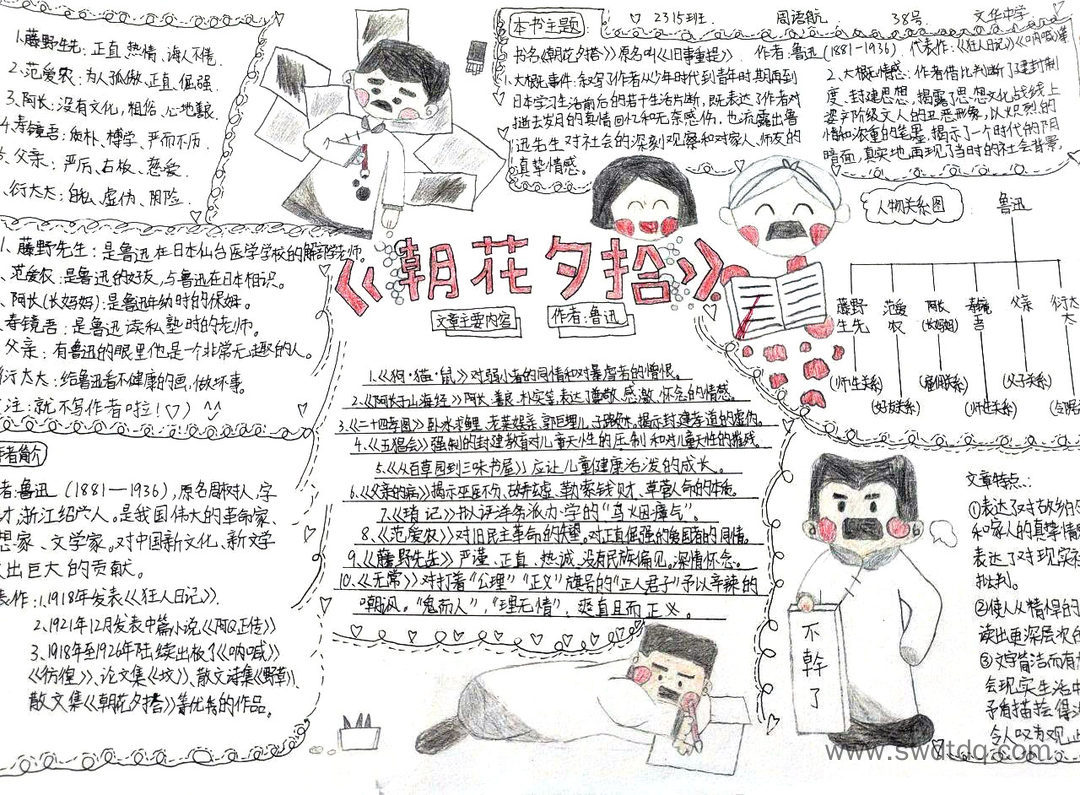 1.藤野先生:正直、热情、诲人不倦.
2.范爱农:为人孤傲、正直、倔强.
3.阿长:没有文化,粗俗、心地善良.
4.寿镜吾:质朴、博学、严而不厉.
父亲:严厉、古板、慈爱.
衍太太:自私、虚伪、阴险.
1、藤野先生:是鲁迅在日本仙台医学学校的解剖学老师.
范爱农:是鲁迅的好友,与鲁迅在日本相识。
阿长(长妈妈):是鲁迅幼时的保姆。
寿镜吾:是鲁迅读私塾时的老师。
父亲:有鲁迅的眼里他是一个非常无趣的人。
衍太太:给鲁迅看不健康的画,做坏事.
注:就不写作者啦!
者简介
者:鲁迅(1881—1936),原名周树人,字
才,浙江绍兴人。是我国伟大的革命家、
想家、文学家。对中国新文化、新文学
出巨大的贡献。
表作:1.1918年发表《狂人日记》.
2.1921年12月发表中篇小说《阿Q正传》
3.1918年至1926年陆续出板了《呐喊》
《彷徨》、论文集《坟》、散文诗集《野草》、
散文集《朝花夕拾》等优秀的作品。
本书主题:
2315班.
周语航
38号.
文华中学
书名《朝花夕拾》原名叫《旧事重提》 作者:鲁迅(1881-1936).代表作:《狂人日记》《呐喊》等
1.大概事件:叙写了作者从少年时代到青年时期再到
日本学习生活前后的若干生活片断,既表达了作者对
逝去岁月的真情回忆和无奈感伤,也流露出鲁
迅先生对社会的深刻观察和对家人、师友的
真挚情感。
2.大概情感:作者借比判断了封建制
度、封建思想,揭露了思想文化战线上
资产阶级文人的丑恶形象,以火炽烈的
情和浓重的笔墨,揭示了一个时代的阴
暗面,真实地再现了当时的社会背景.
《朝花夕拾》
文章主要内容
作者:鲁迅
1.《狗·猫·鼠》对弱小者的同情和对暴虐者的憎恨。
2.《阿长于山海经》阿长、善良、朴实等,表达了尊敬、感激、怀念的情感。
3.《二十四孝图》卧冰求鲤、老莱娱亲、郭巨埋儿、子路负米,揭示封建孝道的虚伪。
4.《五猖会》强制的封建教育对儿童天性的压制和对儿童天性的摧残。
5.《从百草园到三味书屋》应让儿童健康活泼的成长。
6.《父亲的病》揭示巫医不分、故弄玄虚、勒索钱财、草菅人命的本质。
7.《琐记》书人评洋务派办学的“乌烟瘴气”。
8、《范爱农》对旧民主革命的失望。对正直倔强的爱国者的同情。
9、《藤野先生》严谨、正直、热诚、没有民族偏见。深情怀念。
10、《无常》对打著“公理”“正义”旗号的“正人君子”予以辛辣的
嘲讽。“鬼而人”,“理无情”,爽直且而正义。
人物关系图
鲁迅
藤野先生
范爱农
阿长(长妈妈)
寿镜吾
父亲
衍太太
(师生关系)
(好友关系)
(雇佣关系)
(师生关系)
(父子关系)
不幹了
文章特点:
①表达了对故乡的
和家人的真挚情
表达了对现实社
批判。
②使人从精悍的
读出更深层次的
③文字简洁而有
会现实生活中
予肖描绘得淋
令人叹为观止
www.swdtdq.com